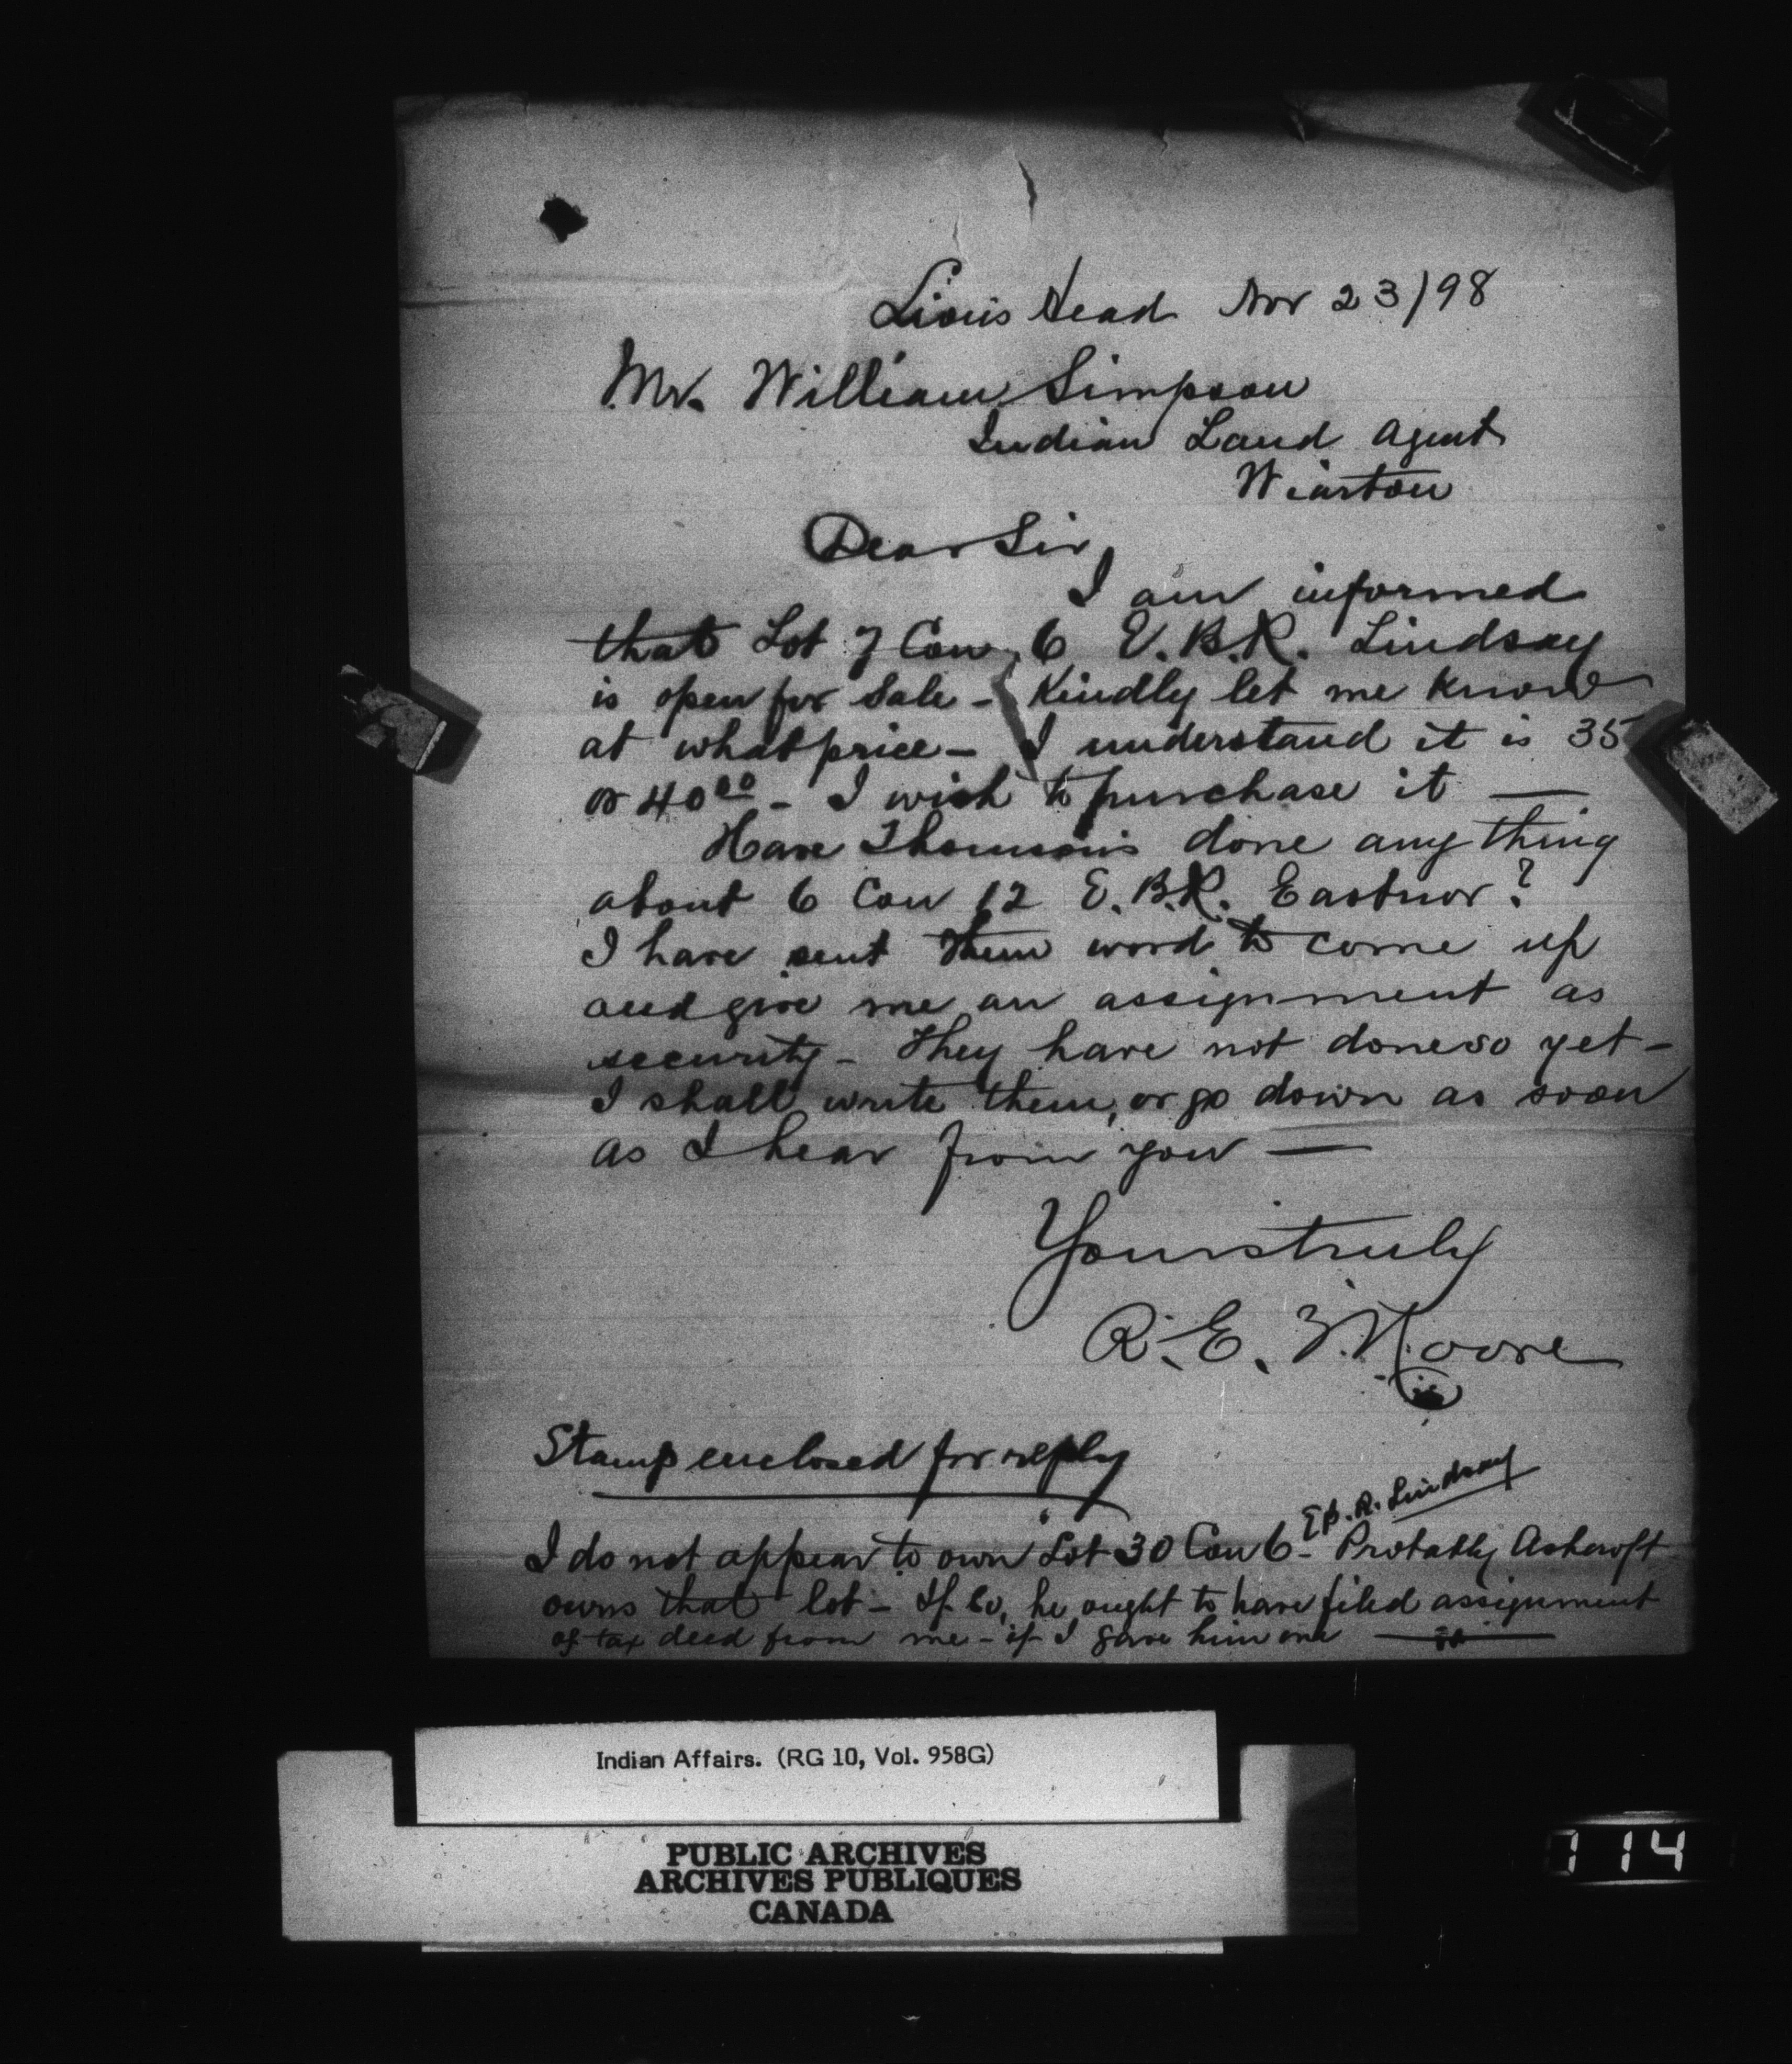 Lion's Head Nov 23/98
Mr. William Simpson
Indian Land Agent
Wiarton
Dear Sir,
I am informed
that Lot 7 Con 6 E.B.R. Lindsay
is open for sale - Kindly let me know
at what price - I understand it is 35
or 40 00 - I wish to purchase it —
Have Thomson's done any thing
about 6 Con 12 E.B.R. Eastnor?
I have sent them word to come up
and give me an assignment as
security - They have not done so yet -
I shall write them, or go down as soon
as I hear from you —
Yours truly
R. E. Moore
Stamp enclosed for reply
E B. R. Lindsay
I do not appear to own Lot 30 Con 6 - Probably Ashcroft
owns that lot - If so, he ought to have filed assignment
of tax deed from me - if I gave him one —
Indian Affairs. (RG 10, Vol. 958G)
PUBLIC ARCHIVES
ARCHIVES PUBLIQUES
CANADA
114